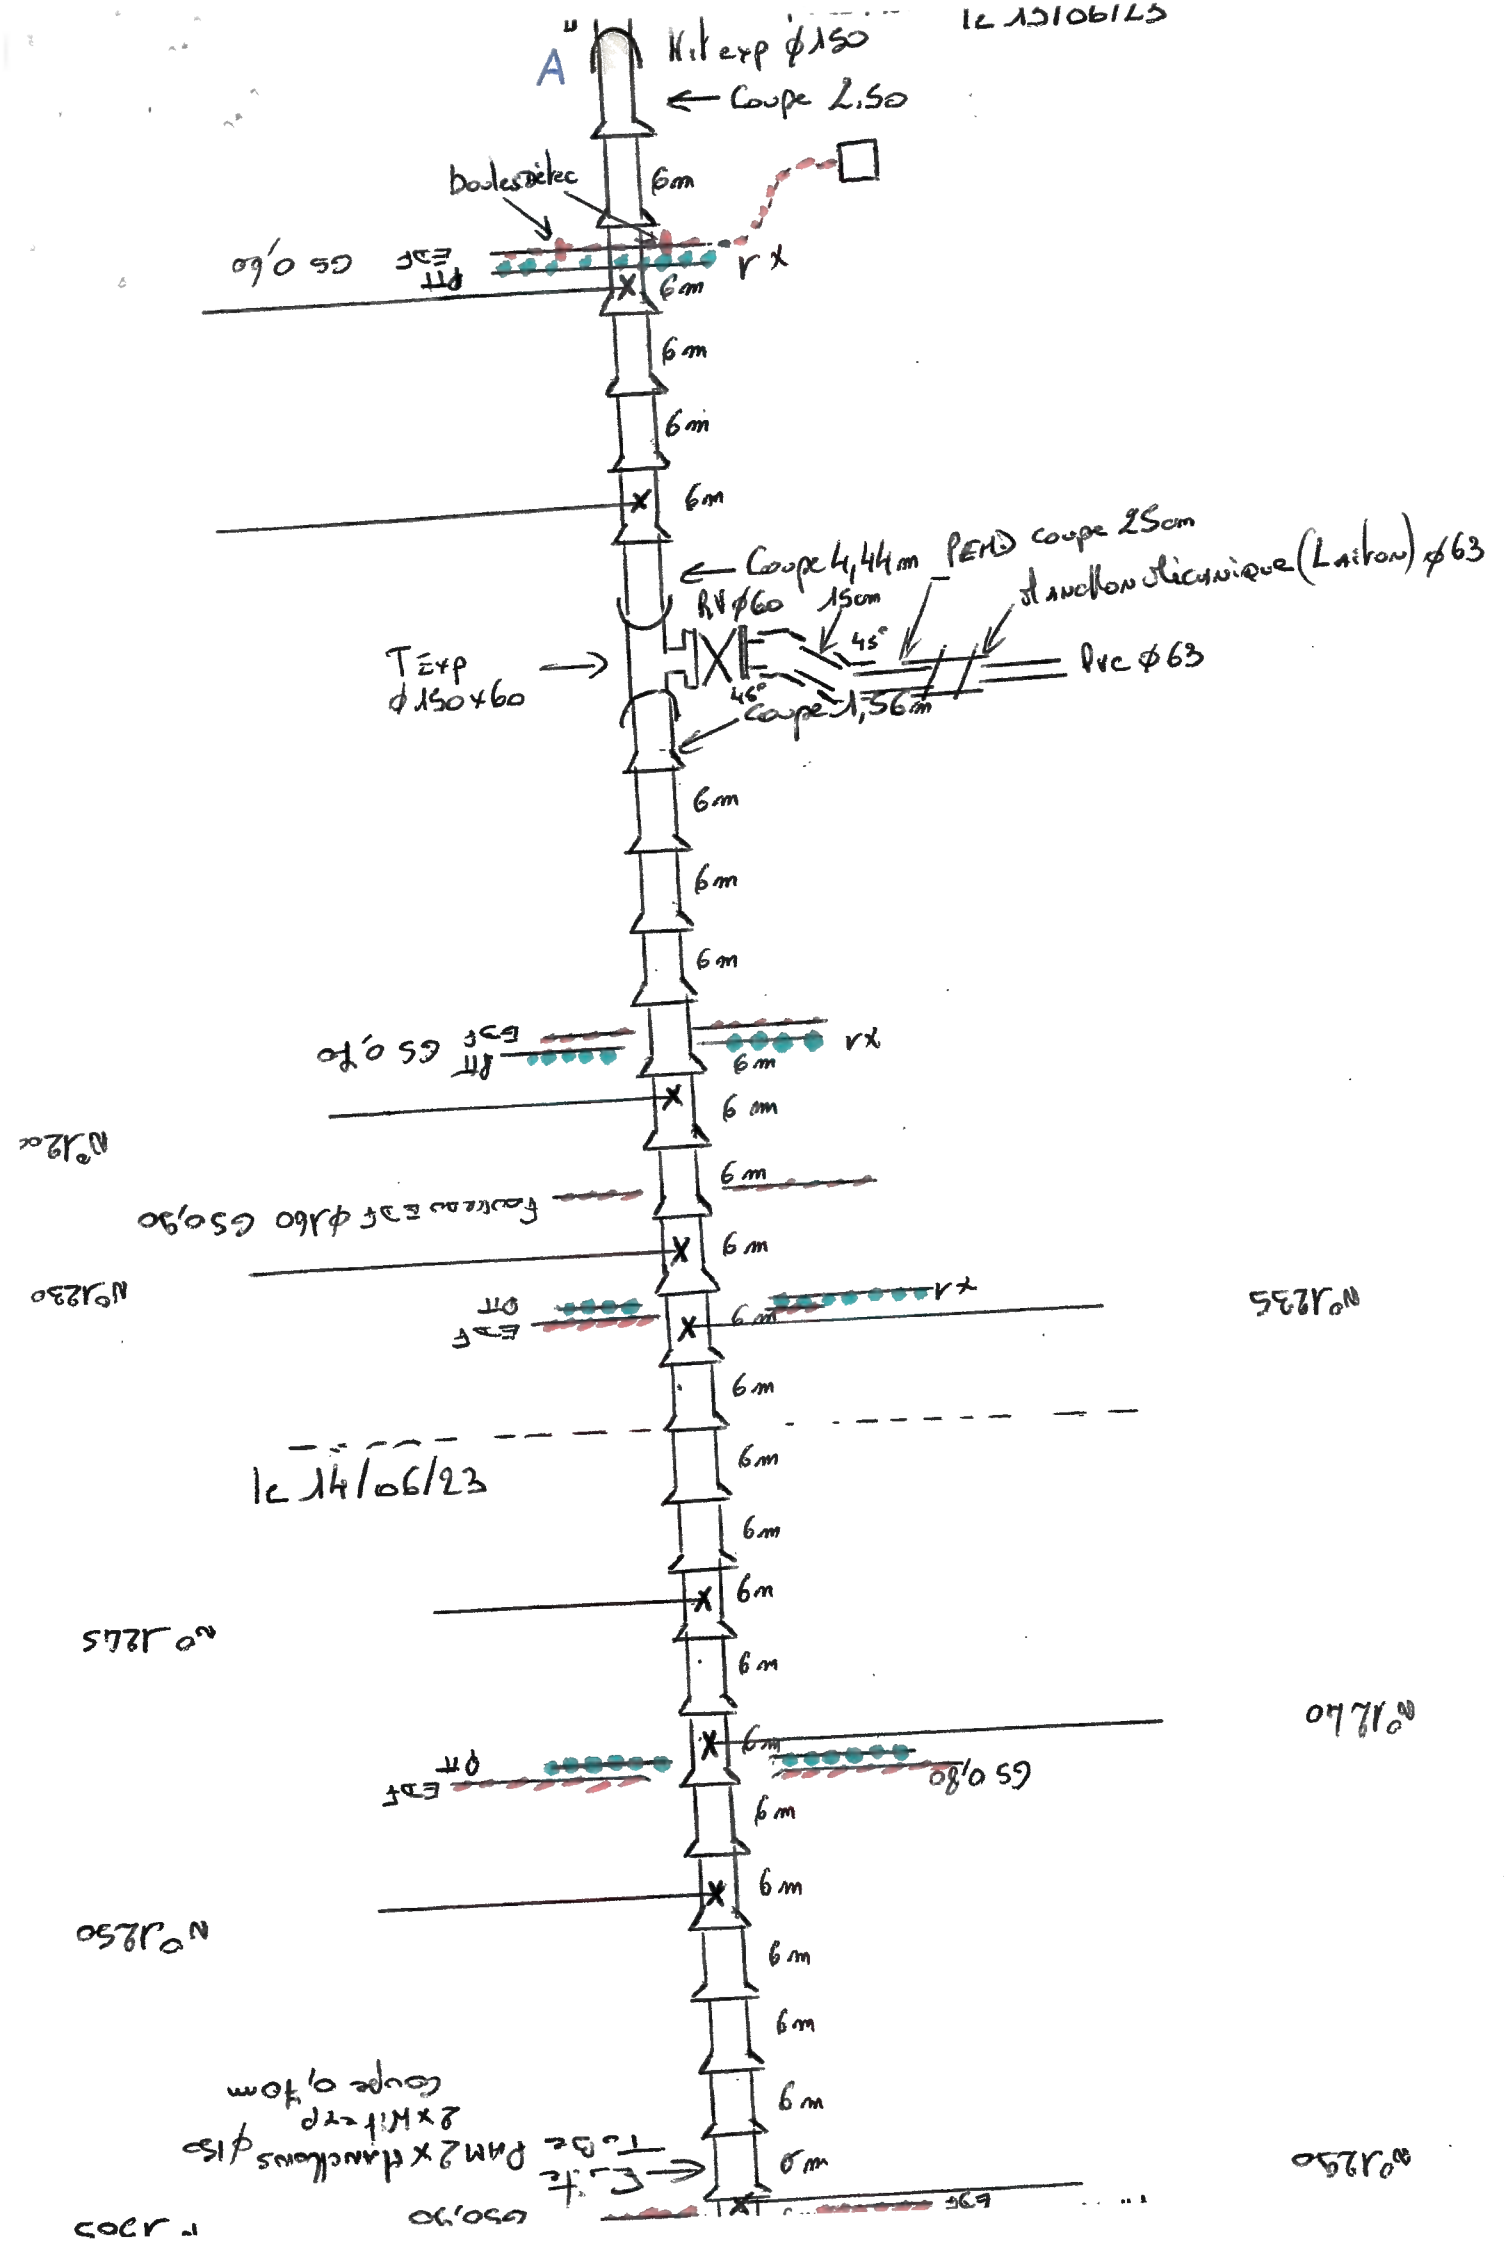 le 13/06/23
A"
Kit exp ϕ150
← Coupe 2.50
Boules Détec
6m
EDF
GS 0,60
PTT
rx
6m
6m
6m
6m
Coupe 4,44m
PEHD coupe 25cm
Manchon Mécanique (Laiton) ϕ63
RV ϕ60
15cm
45°
T Exp
ϕ150x60
Pvc ϕ63
45°
Coupe 1,56m
6m
6m
6m
EDF
GS 0,70
PTT
rx
6m
6m
6m
Fourreau EDF ϕ160 GS 0,90
6m
N°1230
PTT
EDF
rx
6m
N°1235
6m
le 14/06/23
6m
6m
6m
N°1245
6m
N°1240
6m
PTT
EDF
GS 0,80
6m
6m
N°1250
6m
6m
Coupe 0,70m
2x Kit exp
6m
Tube PAM 2x Manchons ϕ150
Fuite
6m
N°1290
GS 0,90
EDF